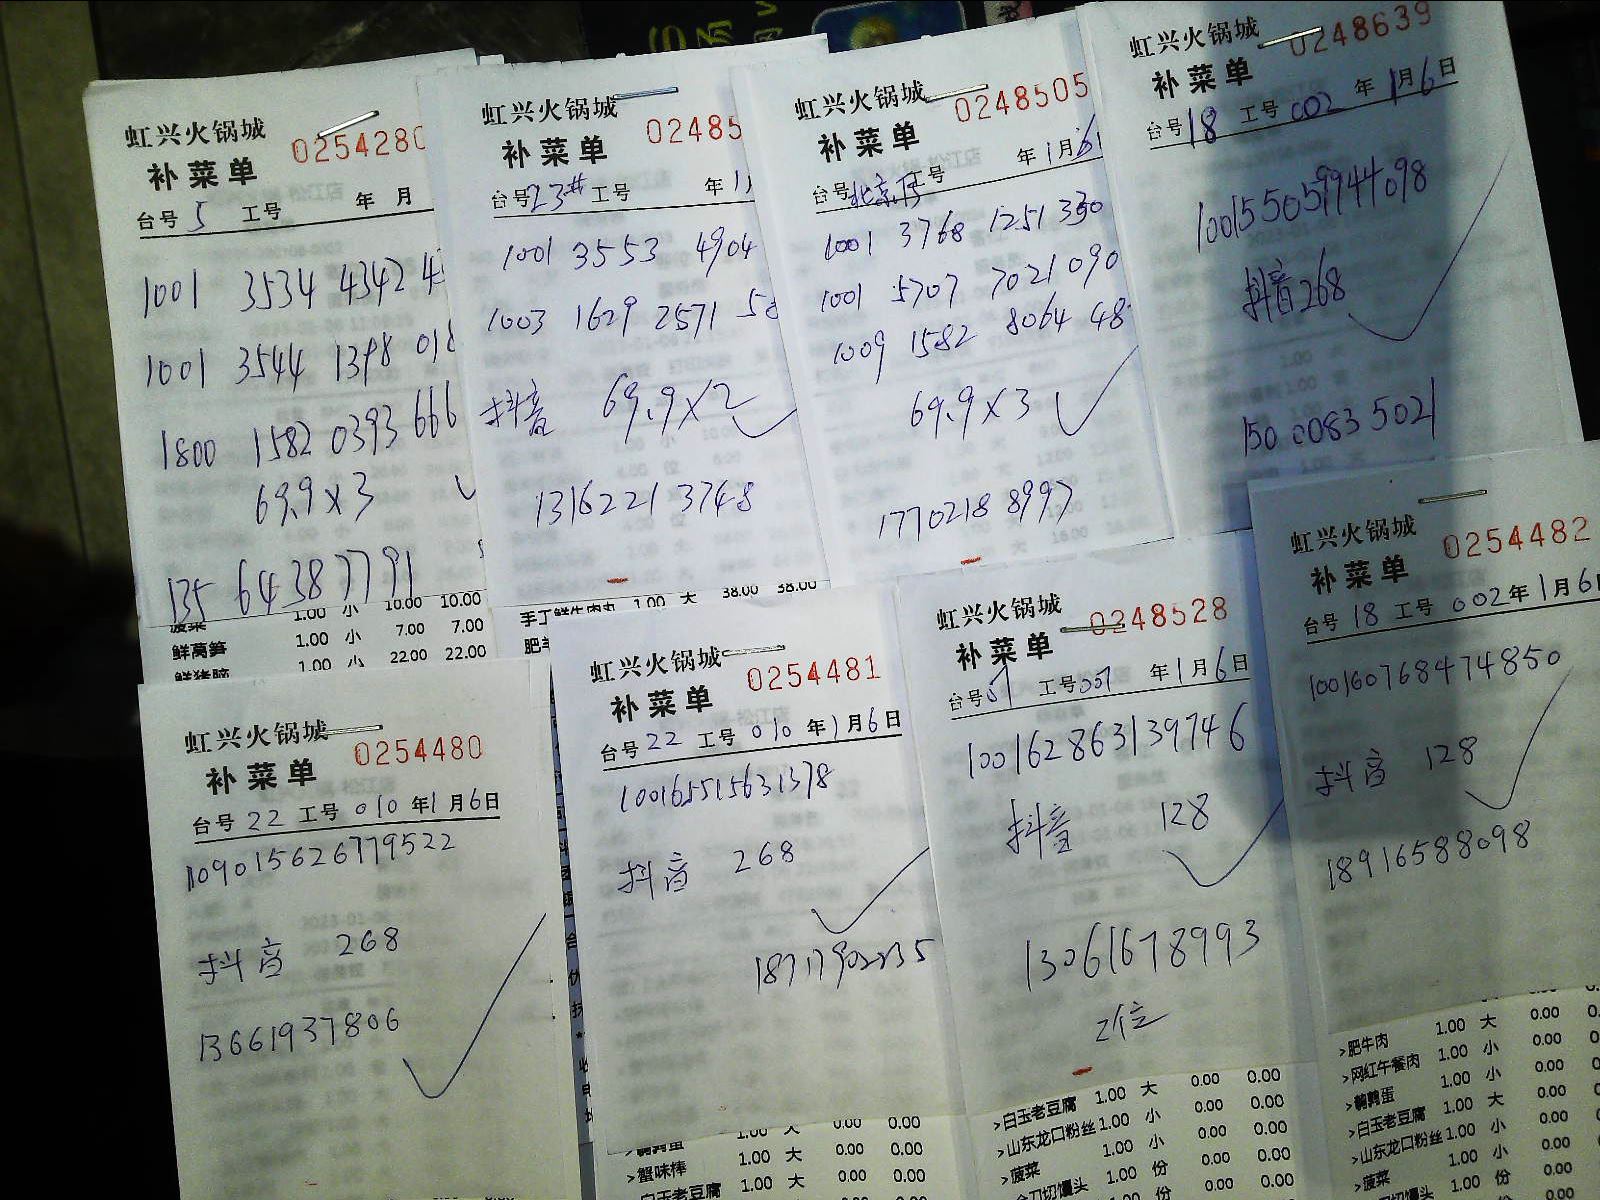 虹兴火锅城
0254280
补菜单
台号 5 工号 年 月
1001 3534 4342
1001 3544 1398 018
1800 1582 0393 666
69.9×3
135 6438 7791
1.00 小 10.00 10.00
鲜莴笋 1.00 小 7.00 7.00
鲜猪脑 1.00 小 22.00 22.00
虹兴火锅城
02485
补菜单
台号 23# 工号 年 1月
1001 3553 4904
1003 1629 2571 58
抖音 69.9×2
13162213748
手工鲜牛肉丸 1.00 大 38.00 38.00
虹兴火锅城
0248505
补菜单
台号 北京厅 工号 年 1月 6
1001 3768 1251 330
1001 5707 7021 090
1009 1582 8064 48
69.9×3
17702188997
虹兴火锅城
0248639
补菜单
台号 18 工号 002 年 1月 6日
100155059944098
抖音 268
15000835021
虹兴火锅城
0254480
补菜单
台号 22 工号 010 年 1月 6日
109015626779522
抖音 268
13661937806
虹兴火锅城
0254481
补菜单
台号 22 工号 010 年 1月 6日
100165515631378
抖音 268
18717902235
>蟹味棒 1.00 大 0.00 0.00
白玉老豆腐 1.00 大 0.00 0.00
虹兴火锅城
0248528
补菜单
台号 工号 007 年 1月 6日
100162863139746
抖音 128
13061678993
2位
>白玉老豆腐 1.00 大 0.00 0.00
>山东龙口粉丝 1.00 小 0.00 0.00
>菠菜 1.00 小 0.00 0.00
1.00 份 0.00 0.00
虹兴火锅城
0254482
补菜单
台号 18 工号 002 年 1月 6日
100160768474850
抖音 128
18916588098
>肥牛肉 1.00 大 0.00
>网红午餐肉 1.00 小 0.00
>鹌鹑蛋 1.00 小 0.00
>白玉老豆腐 1.00 大 0.00
>山东龙口粉丝 1.00 小 0.00
>菠菜 1.00 小 0.00